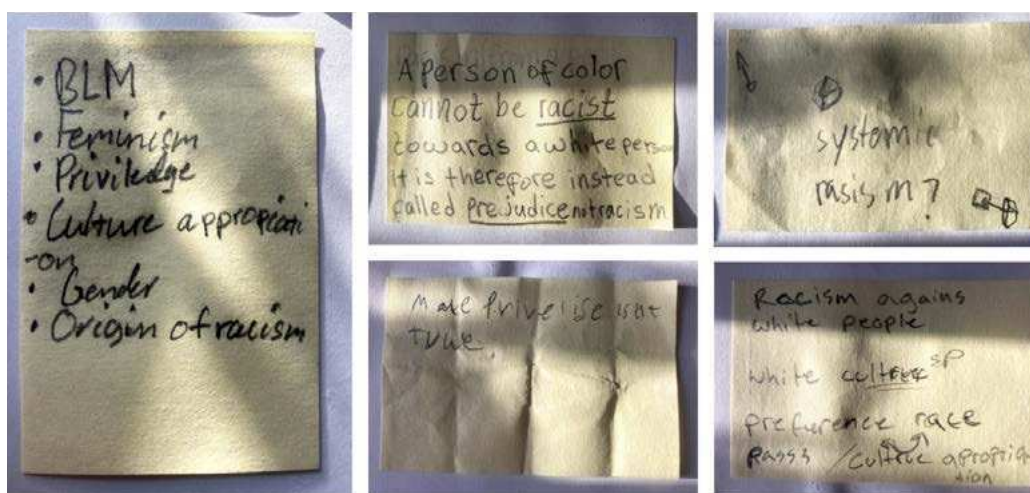 • BLM
• Feminism
• Priviledge
• Culture appropiati
-on
• Gender
• Origin of racism
A person of color
cannot be racist
towards a white person
it is therefore instead
called prejudice not racism
systomic
rasism?
Male Privelige isnt
true.
Racism agains
white people
white culture sp
preference race
pass /culture apropria
-tion